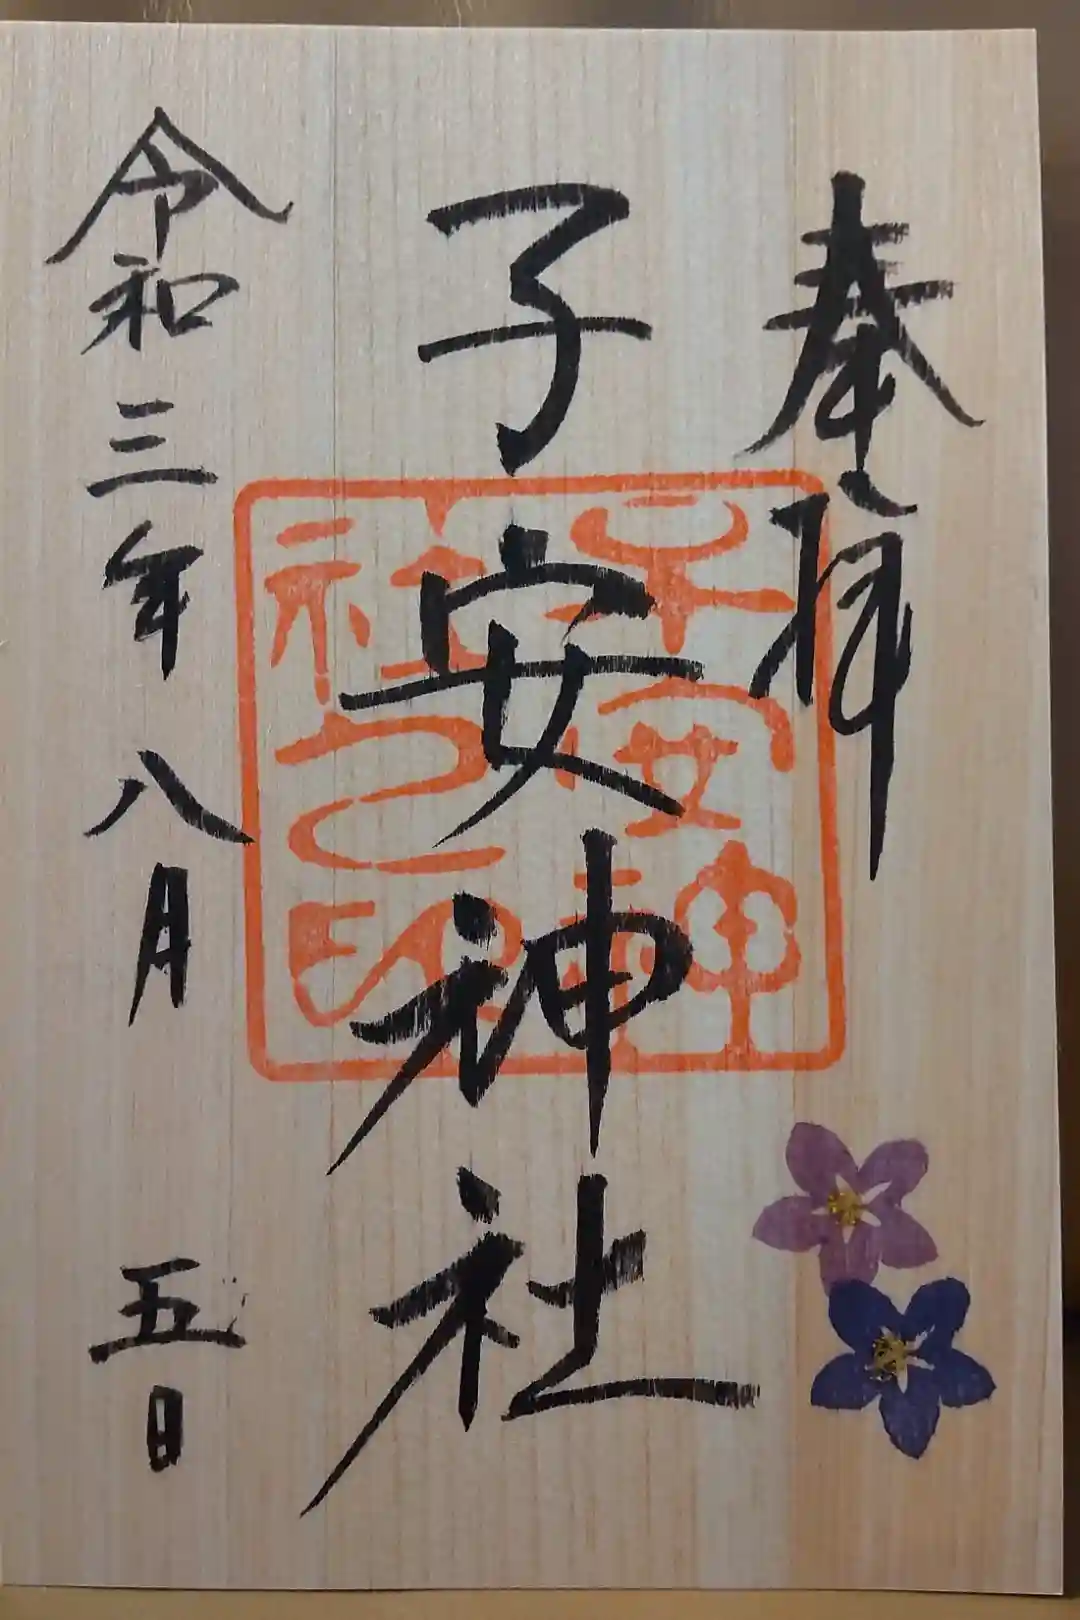 奉拝
子安神社
子安神
社之印
令和三年八月五日